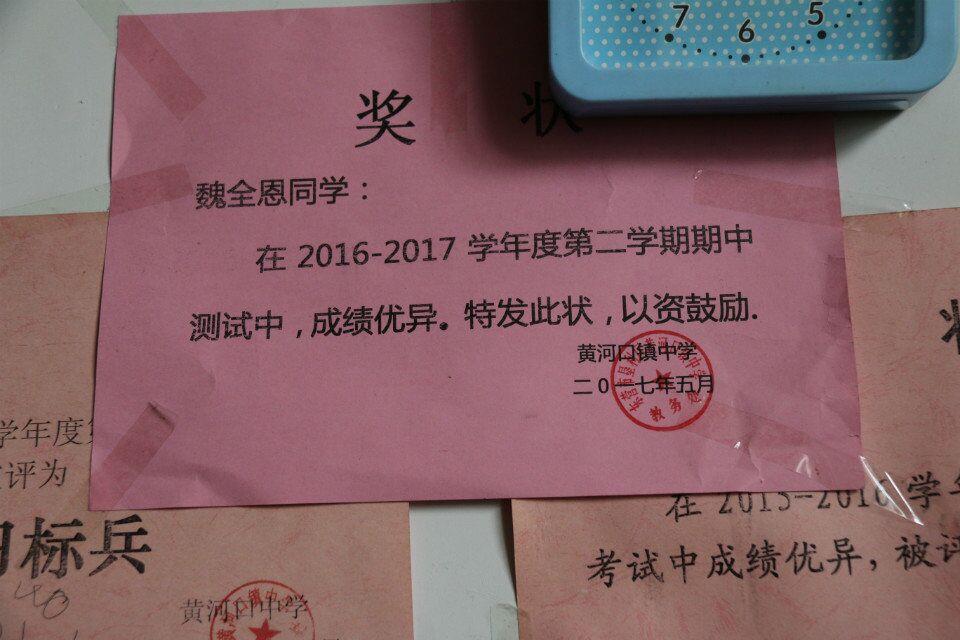 7 6 5
奖 状
魏全恩同学：
在 2016-2017 学年度第二学期期中
测试中，成绩优异。特发此状，以资鼓励.
黄河口镇中学
二０一七年五月
教务处
学年度第
评为
标兵
40
黄河口中学
状
在 2015-2016 学年
考试中成绩优异，被评